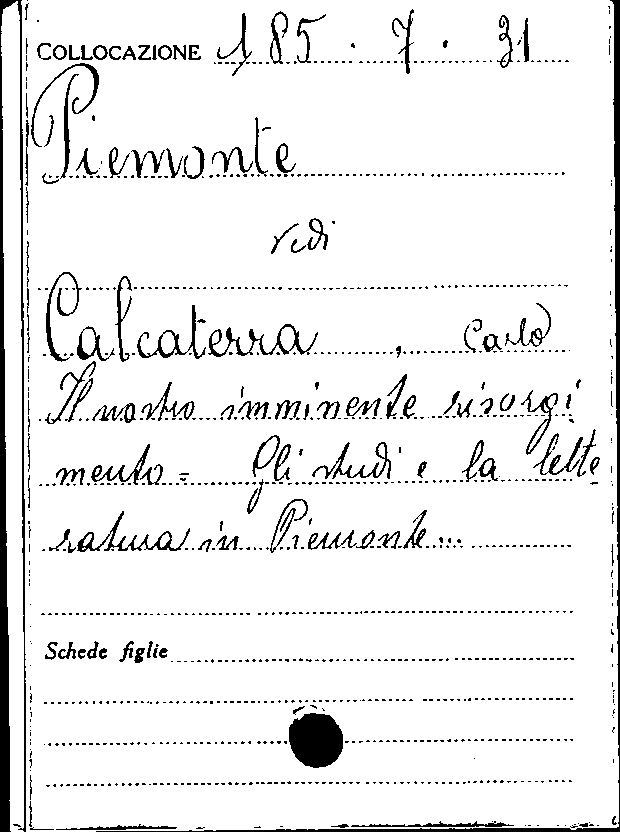 COLLOCAZIONE 185.7.31
Piemonte
vedi
Calcaterra, Carlo
Il nostro imminente risorgi
mento = Gli studi e la lette
ratura in Piemonte...
Schede figlie